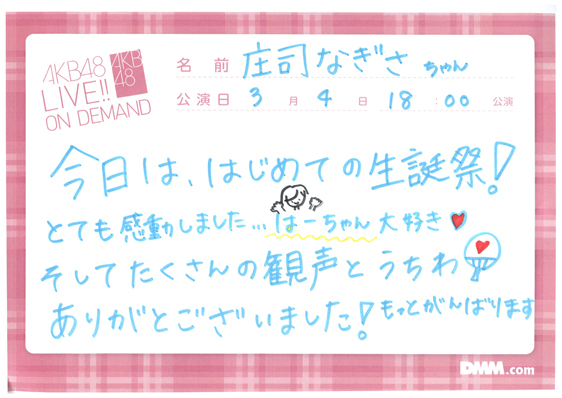 AKB48
LIVE!!
ON DEMAND
AKB
48
名前 庄司なぎさちゃん
公演日 3月4日 18:00公演
今日は、はじめての生誕祭!
とても感動しました...はーちゃん大好き
そしてたくさんの観声とうちわ
ありがとございました!もっとがんばります
DMM.com